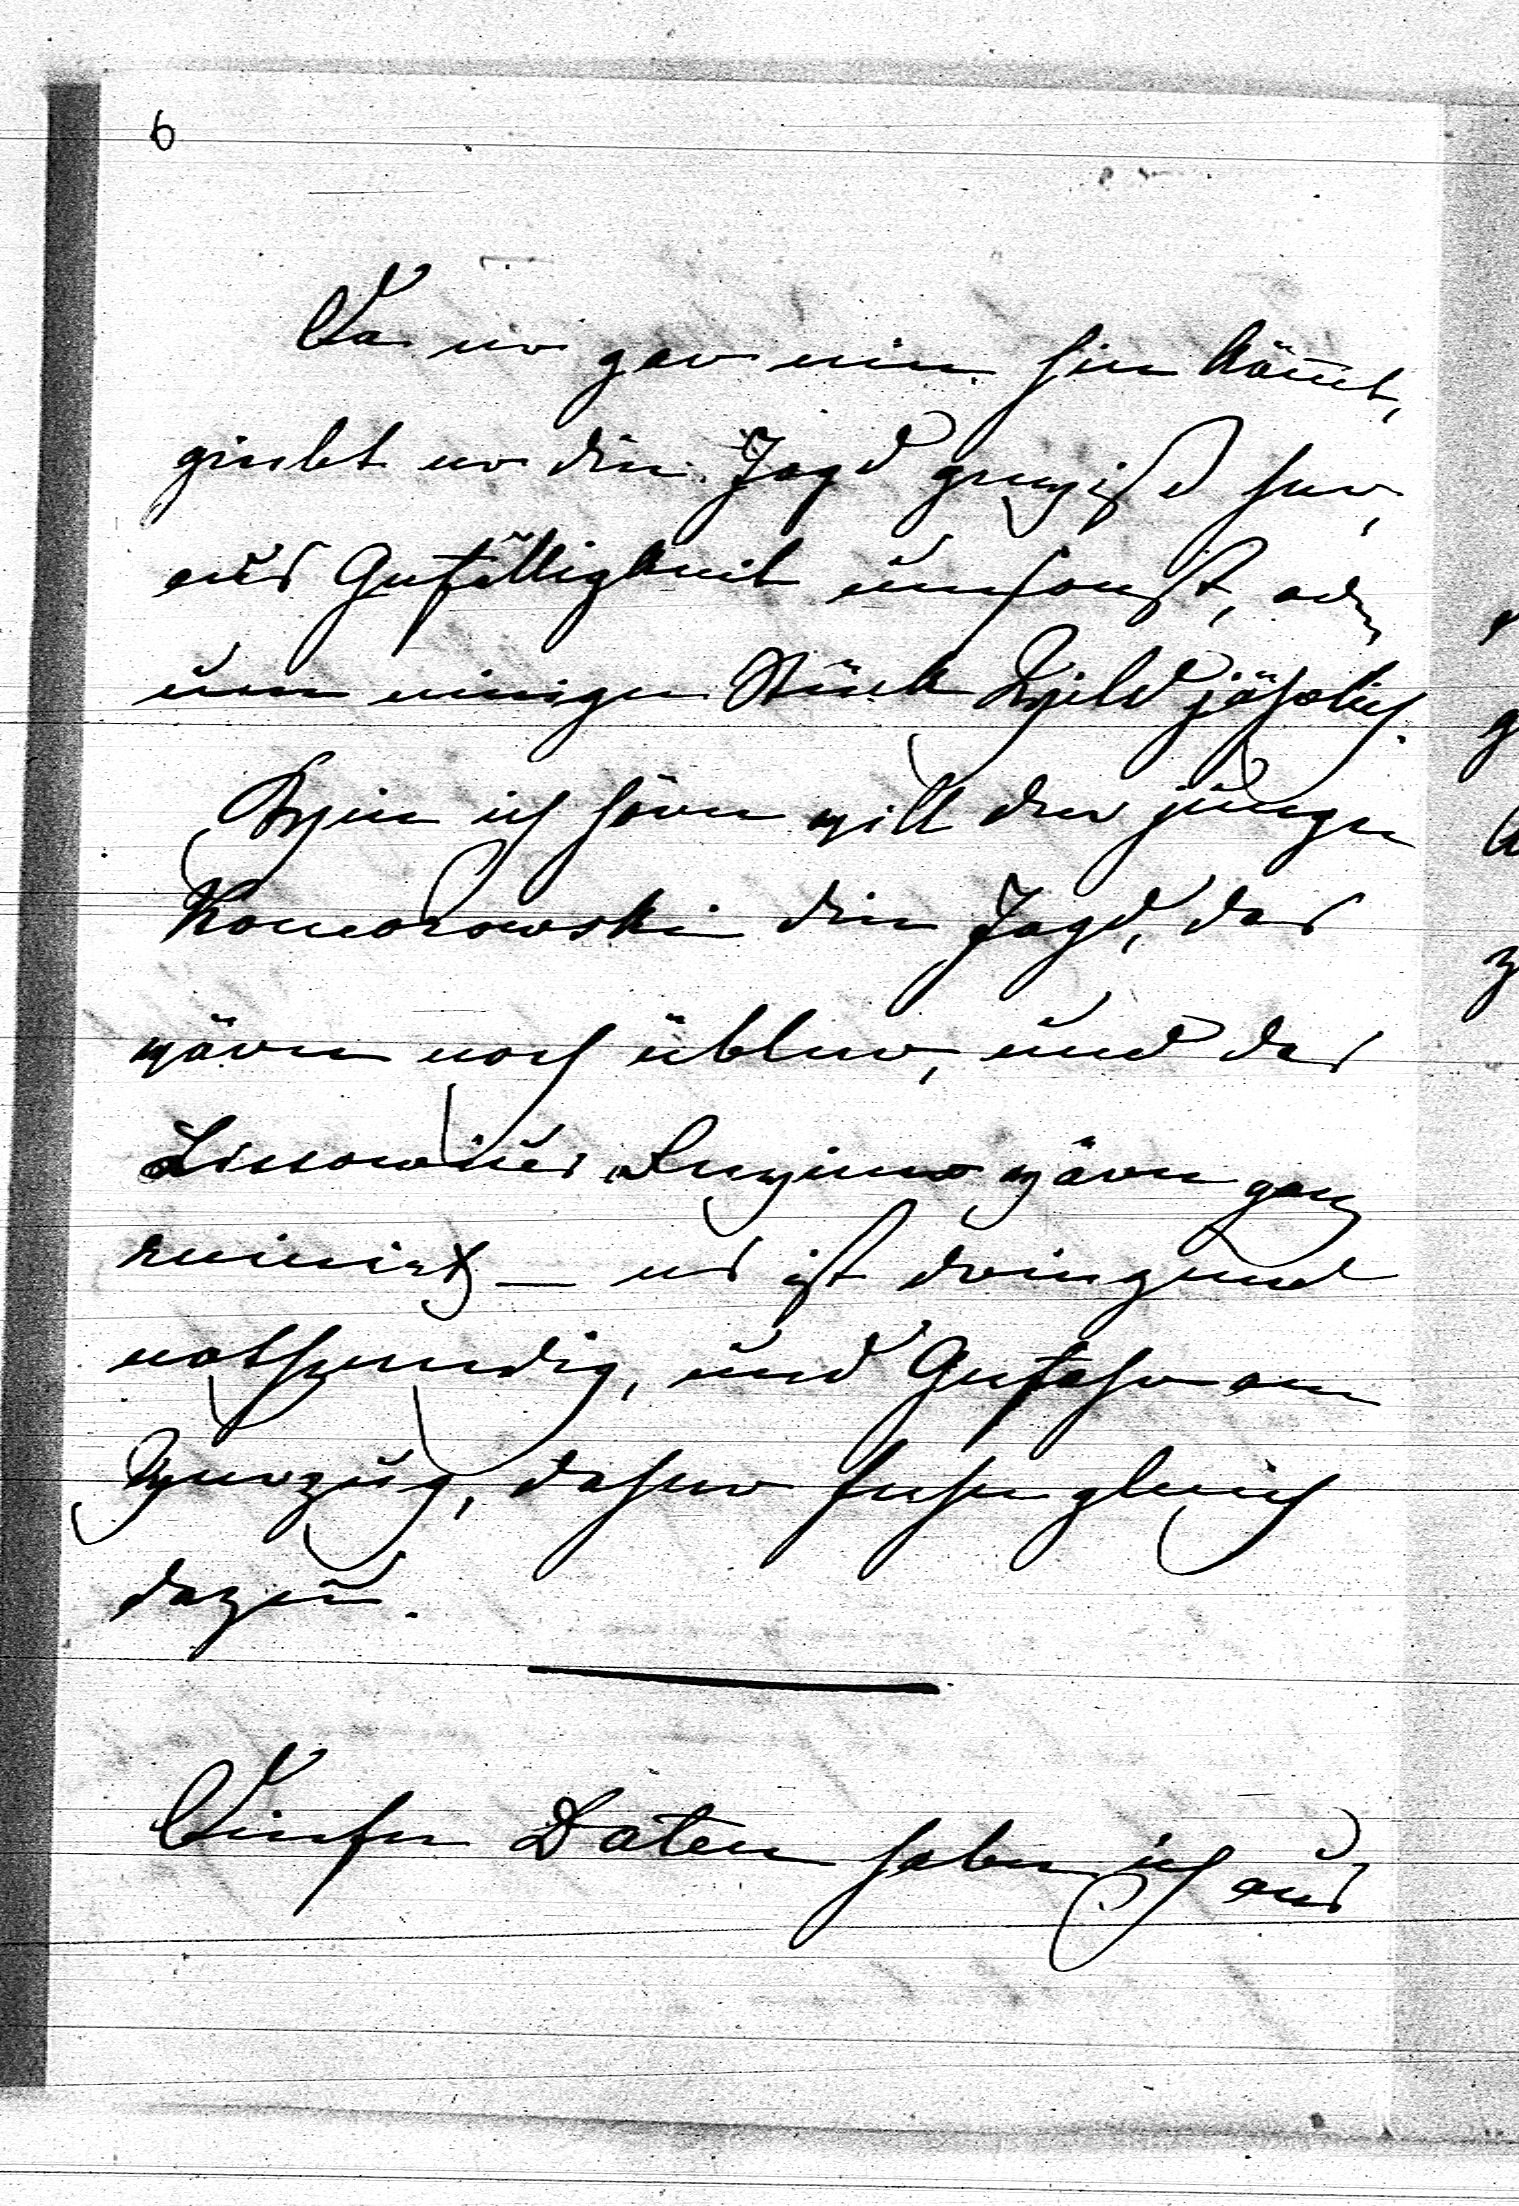 6
Da er gar nie hin kömt,
giebt er die Jagd gewiß her,
aus Gefälligkeit umsonst, oder
um einige Stück Wild jährlich.
Wie ich höre will der junge
Komorowski die Jagd, das
wäre noch übler, und das
Lissowitzer Revier wäre ganz
ruinirt – es ist dringend
nothwendig, und Gefahr am
Verzug, daher sehen gleich
dazu.
Diese Daten habe ich aus